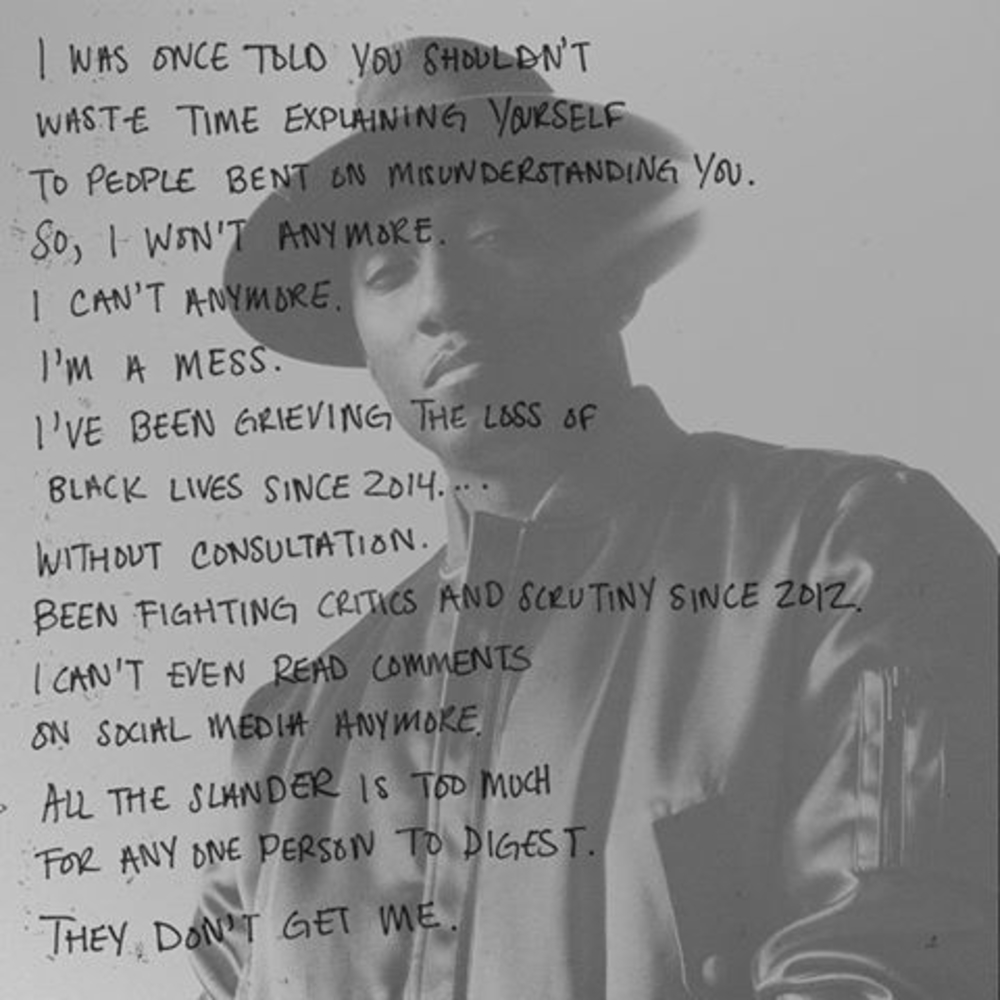 I WAS ONCE TOLD YOU SHOULDN'T
WASTE TIME EXPLAINING YOURSELF
TO PEOPLE BENT ON MISUNDERSTANDING YOU.
SO, I WON'T ANYMORE.
I CAN'T ANYMORE.
I'M A MESS.
I'VE BEEN GRIEVING THE LOSS OF
BLACK LIVES SINCE 2014....
WITHOUT CONSULTATION.
BEEN FIGHTING CRITICS AND SCRUTINY SINCE 2012.
I CAN'T EVEN READ COMMENTS
ON SOCIAL MEDIA ANYMORE.
ALL THE SLANDER IS TOO MUCH
FOR ANY ONE PERSON TO DIGEST.
THEY DON'T GET ME.